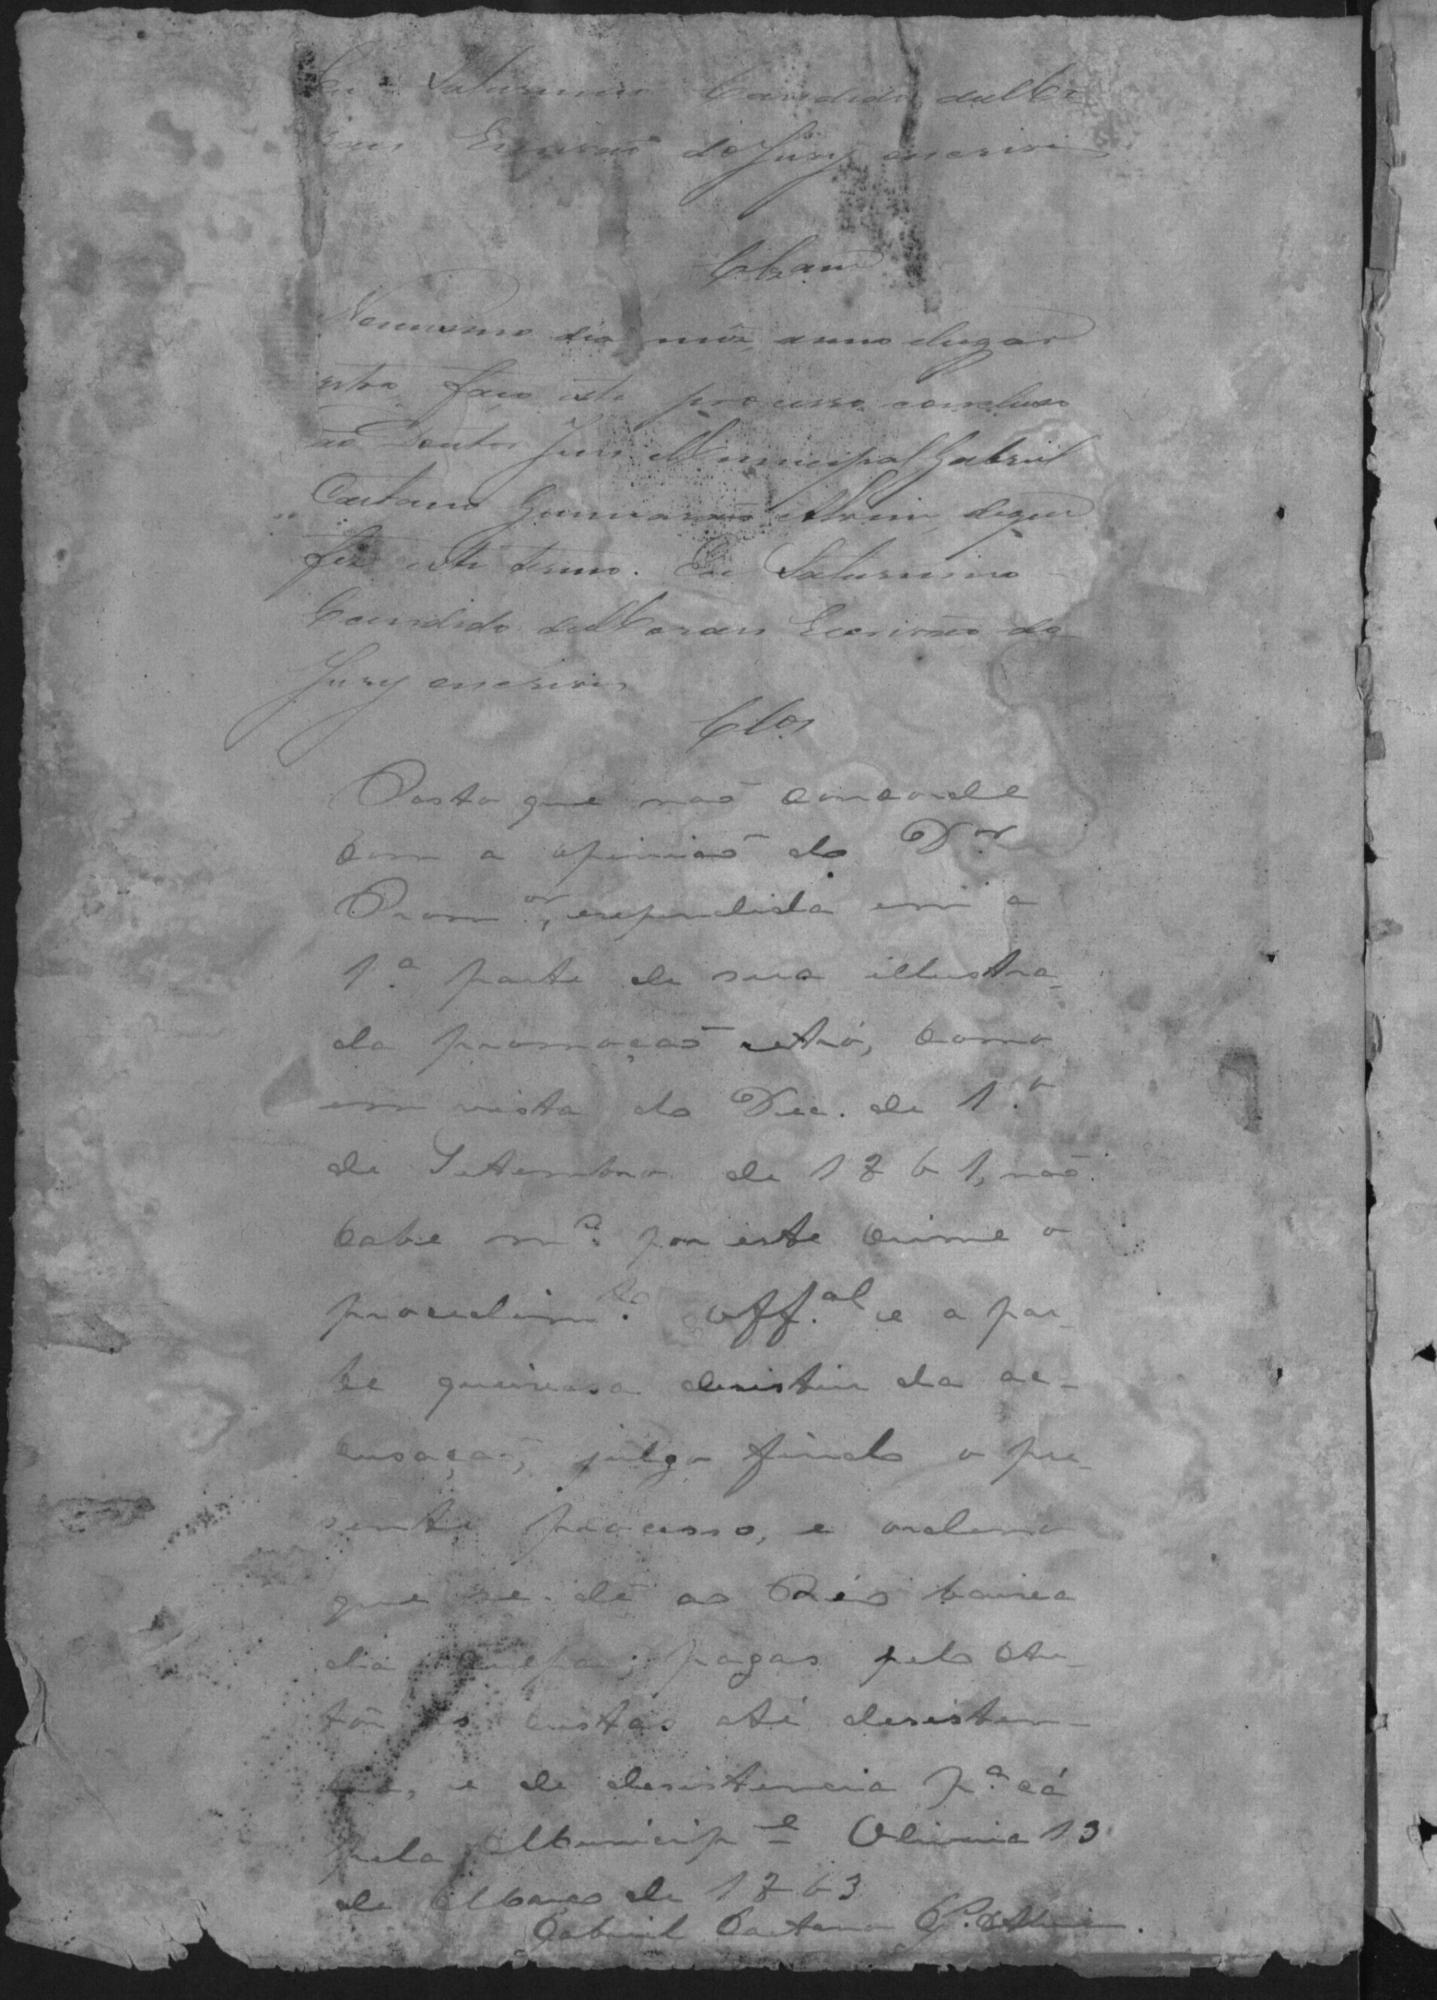 Eu Saturnino Candido de Mo
raes Escrivão do Jury escrevi
Clzam
No mesmo dia, mês, anno e lugar
retro faço este processo concluso
ao Doutor Juis Municipal Gabriel
Caetano Guimarães Alvim, de que
fiz este termo. Eu Saturnino
Candido de Moraes Escrivão do
Jury escrevi
Clos
Posto que não concorde
com a opinião do Dor
Promor, expendida em a
1.a parte de sua illustra-
da promoção retró, como
em vista do Dec. de 1.o
de Setembro de 1861, não
cabe m.s por este crime o
procedim.to off.al e a par-
te queixosa desistiu da ac-
cusação, julgo findo o pre-
sente processo, e ordeno
que se dê ao Réo baixa
da culpa; pagas pelo Au-
tôr as custas até desisten-
cia, e de desistencia p.a cá
pela Municip.e Oliveira 13
de Março de 1863
Gabriel Caetano G. Alvim.